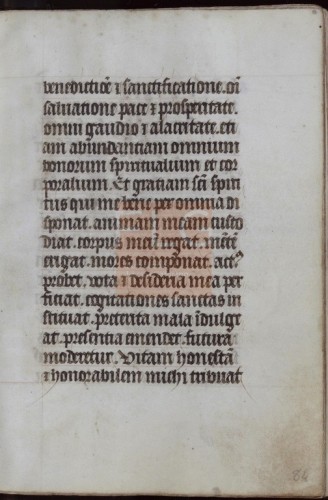 benedictiōe ⁊ sanctificatione. oī
saluatione pace ⁊ prosperitate.
omni gaudio ⁊ alacritate. eti
am abundantiam omnium
bonorum spiritualium et cor
poralium. Et gratiam sc̄i spiri
tus qui me bene per omnia di
sponat. animam meam custo
diat. corpus meū regat. mētē
erigat. mores componat. actꝰ
probet. vota ⁊ desideria mea per
ficiat. cogitationes sanctas in
stituat. preterita mala īdulge
at. presentia emendet. futura
moderetur. Vitam honestā
⁊ honorabilem michi tribuat